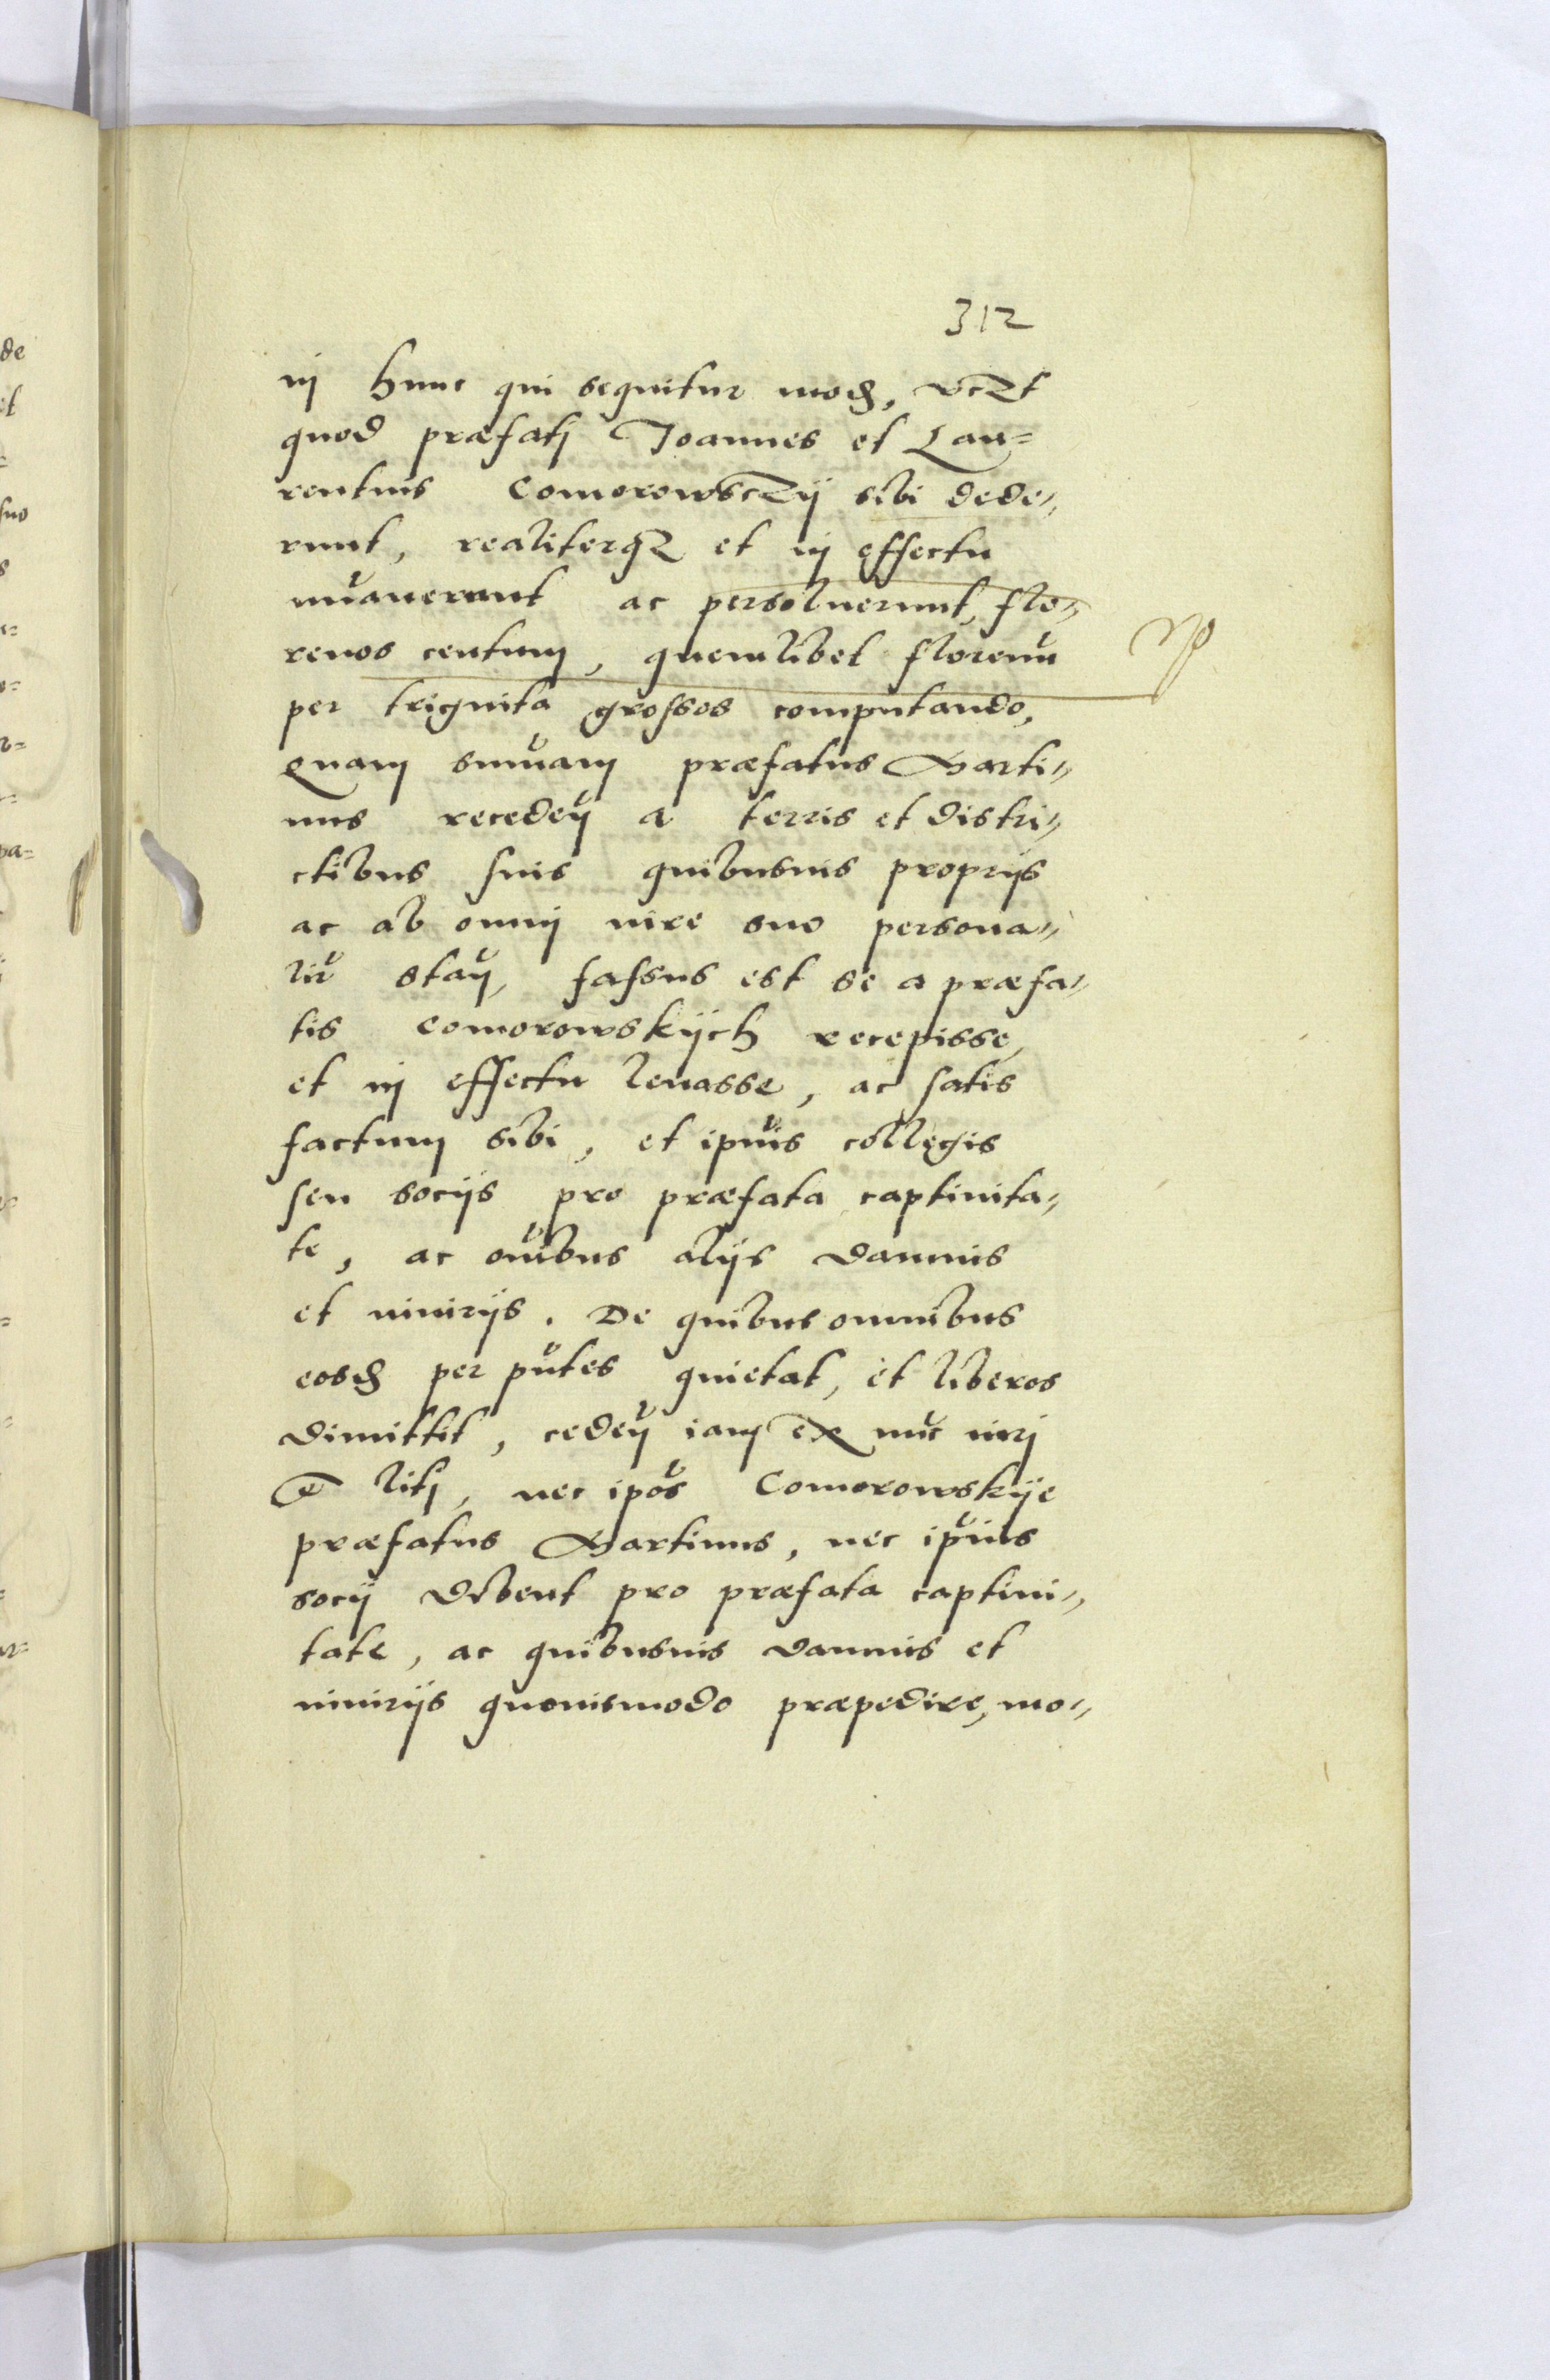 312
in hunc qui sequitur mod., vczt
quod præfatj Joannes et Lau=
rentius Comorowsczij sibi dede=
runt, realiterqz et in effectu
nũauerunt ac persoluerunt, flo=
renos centum, quemlibet florenũ
per triginta grossos computando,
Quam sum̃am præfatus Marti=
nus receden̄ a terris et distri=
ctibus suis quibusuis proprijs
ac ab omnj iure suo persona=
lit̃ stan̄, fassus est se a præfa=
tis Comorowskijch recepisse,
et in effectu leuasse, ac satis
factum sibi, et ip̃iũs collegis
seu socijs pro præfata captiuita=
te, ac om̃ibus alijs damnis
et iniurijs. De quibus omnibus
eosd. per pñtes quietat, et liberos
dimittit, ceden̄ iam ex nũc iurj
et litj, nec ip̃os Comorowskije
præfatus Martinus, nec ip̃ius
socij debent pro præfata captiui=
tate, ac quibusuis damnis et
iniurijs quouismodo præpedire, mo=